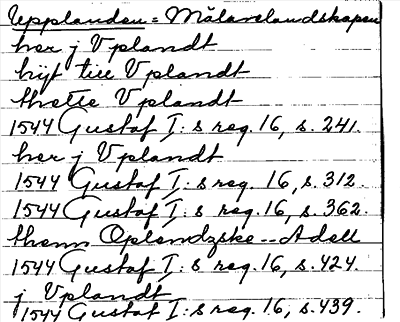 Upplanden = Mälarelandskapen
her j Vplandt
hijt till Vplandt
thette Vplandt
1544 Gustaf I:s reg. 16, s. 241.
her j Vplandt
1544 Gustaf I:s reg. 16, s. 312.
1544 Gustaf I:s reg. 16, s. 362.
thenn Oplendzske -- Adell
1544 Gustaf I:s reg. 16, s. 424.
j Vplandt
1544 Gustaf I:s reg. 16, s. 439.